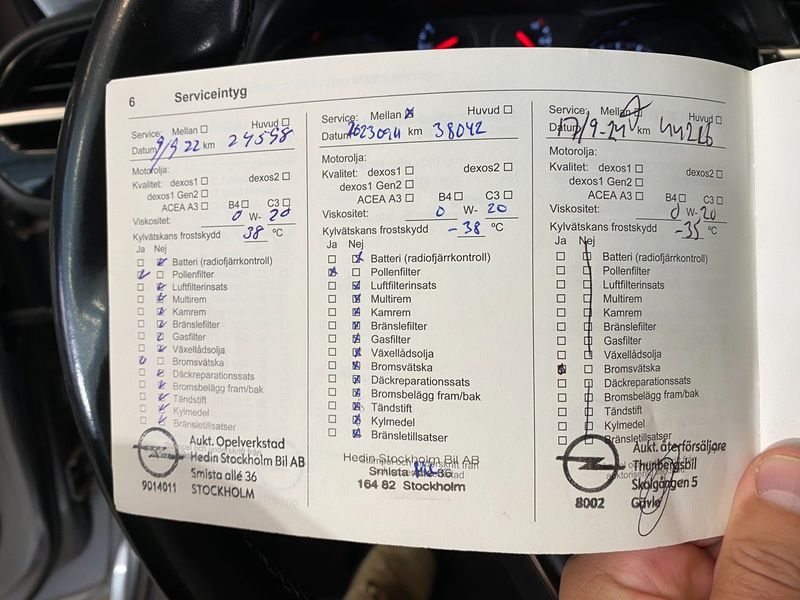 6 Serviceintyg
Service: Mellan Huvud
Datum 9/9 22 km 24598
Motorolja:
Kvalitet: dexos1 dexos2
dexos1 Gen2
ACEA A3 B4 C3
Viskositet: 0 W- 20
Kylvätskans frostskydd 38 °C
Ja Nej
Batteri (radiofjärrkontroll)
Pollenfilter
Luftfilterinsats
Multirem
Kamrem
Bränslefilter
Gasfilter
Växellådsolja
Bromsvätska
Däckreparationssats
Bromsbelägg fram/bak
Tändstift
Kylmedel
Bränsletillsatser
Aukt. Opelverkstad
Hedin Stockholm Bil AB
Smista allé 36
9014011 STOCKHOLM
Service: Mellan Huvud
Datum km 38042
Motorolja:
Kvalitet: dexos1 dexos2
dexos1 Gen2
ACEA A3 B4 C3
Viskositet: 0 W- 20
Kylvätskans frostskydd -38 °C
Ja Nej
Batteri (radiofjärrkontroll)
Pollenfilter
Luftfilterinsats
Multirem
Kamrem
Bränslefilter
Gasfilter
Växellådsolja
Bromsvätska
Däckreparationssats
Bromsbelägg fram/bak
Tändstift
Kylmedel
Bränsletillsatser
Hedin Stockholm Bil AB
Smista allé 36
164 82 Stockholm
Service: Mellan Huvud
Datum 17/9-24 km
Motorolja:
Kvalitet: dexos1 dexos2
dexos1 Gen2
ACEA A3 B4 C3
Viskositet: 0 W-20
Kylvätskans frostskydd -35 °C
Ja Nej
Batteri (radiofjärrkontroll)
Pollenfilter
Luftfilterinsats
Multirem
Kamrem
Bränslefilter
Gasfilter
Växellådsolja
Bromsvätska
Däckreparationssats
Bromsbelägg fram/bak
Tändstift
Kylmedel
Bränsletillsatser
Aukt. återförsäljare
Thunbergsbil
Skolgången 5
8002 Gävle